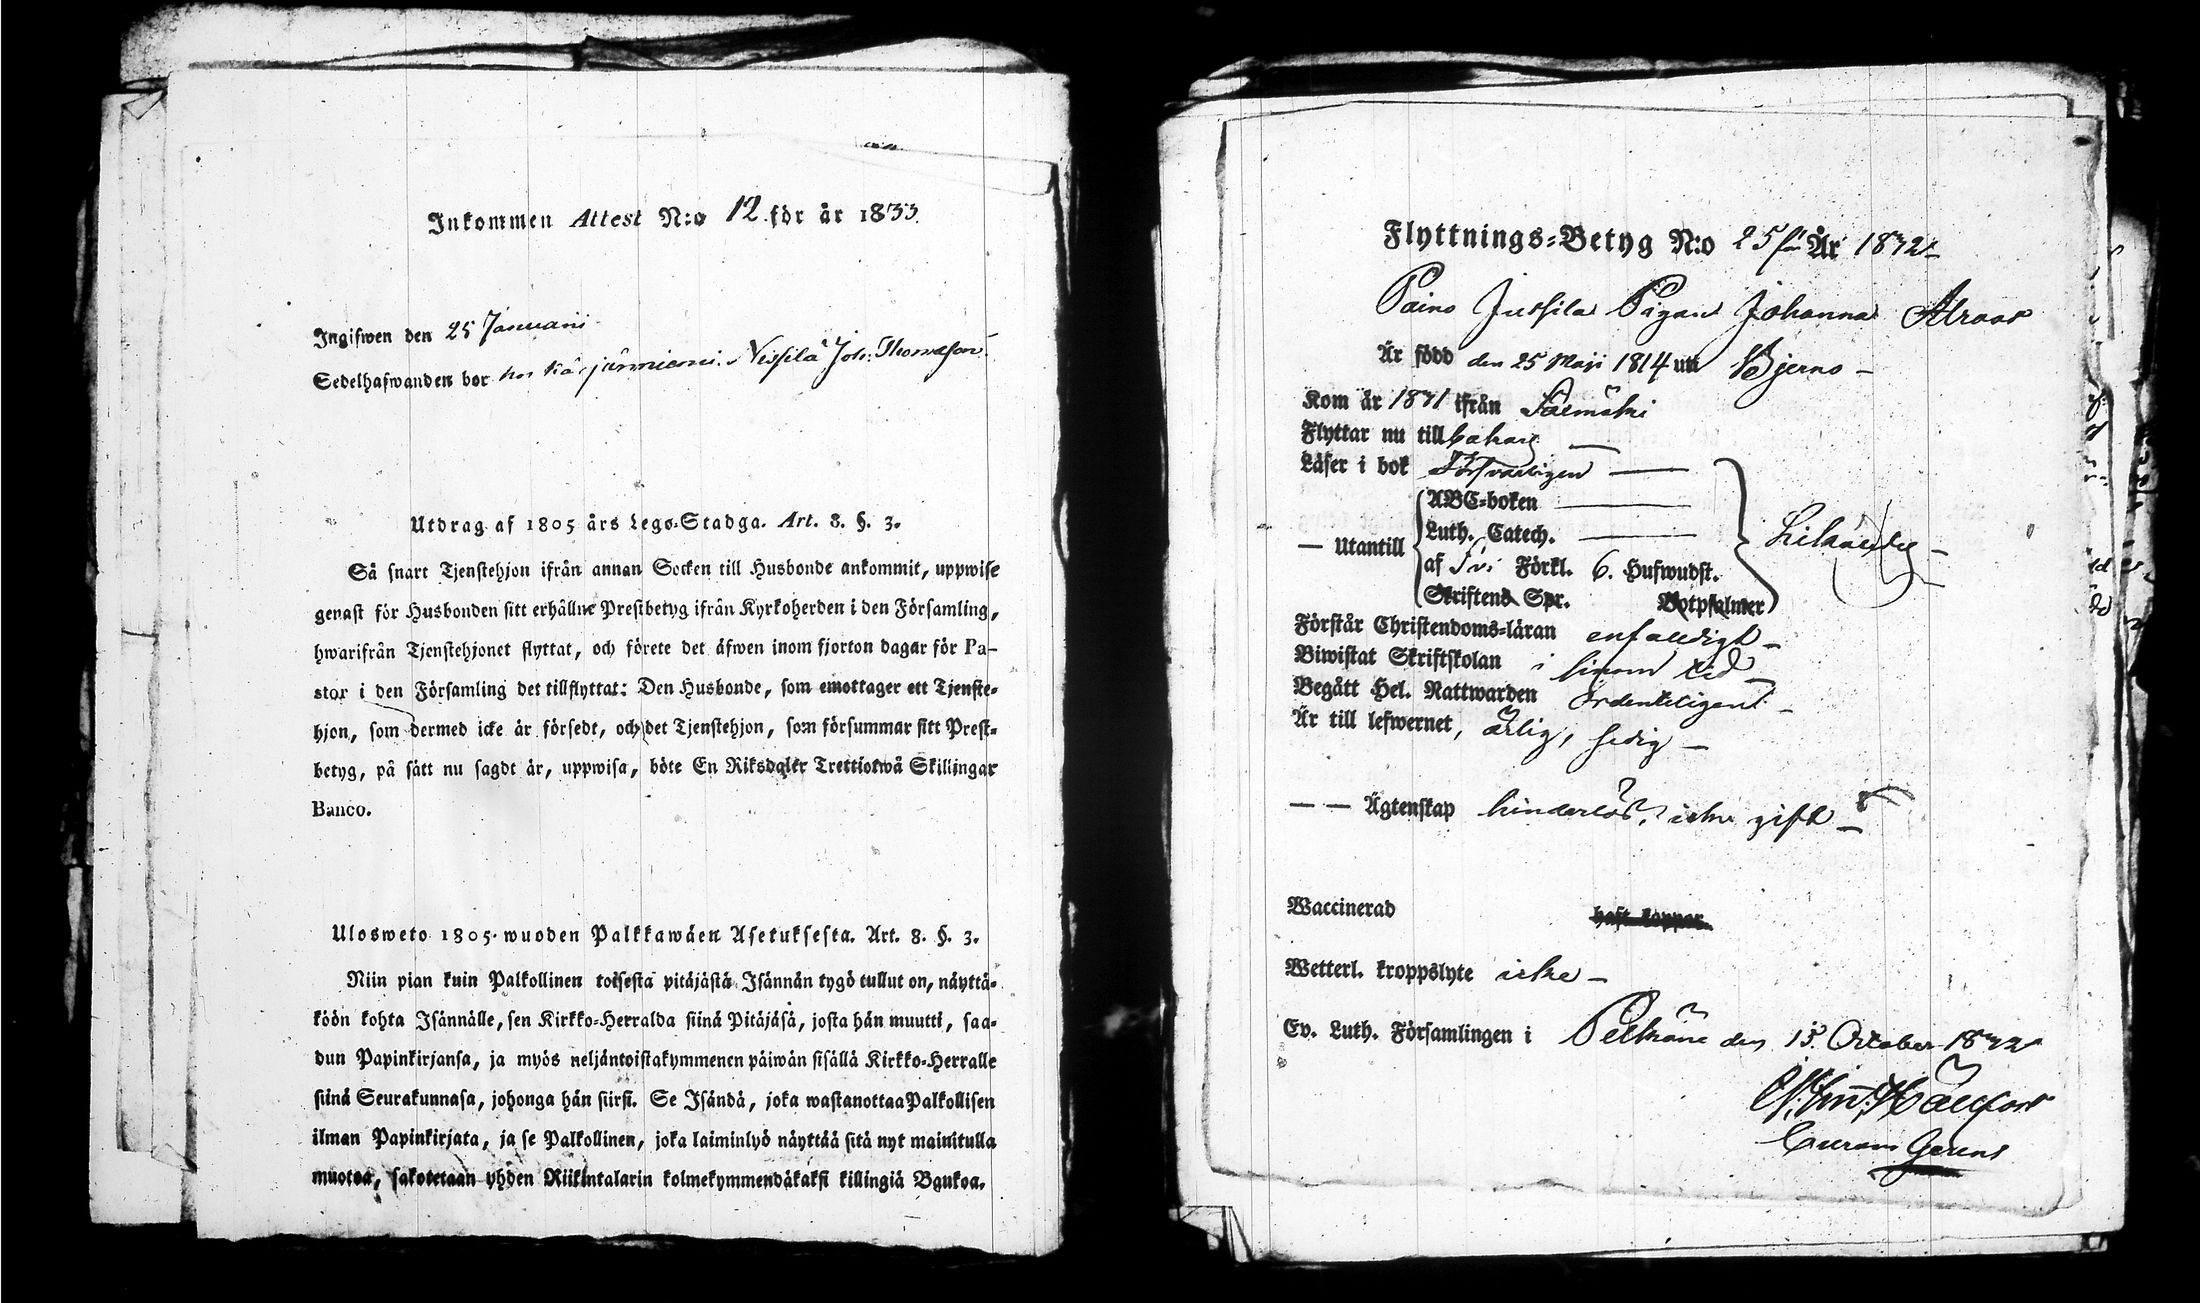 Inkommen Attest N:o 12 för år 1833.
Ingifwen den 25 Januarii
Sedelhafwanden bor hos Joh: Thomasson.
Utdrag af 1805 års Lego-Stadga. Art. 8. §. 3.
Så snart Tjenstehjon ifrån annan Socken till Husbonde ankommit, uppwise
genast för Husbonden sitt erhållne Prestbetyg ifrån Kyrkoherden i den Församling,
hwarifrån Tjenstehjonet flyttat, och förete det äfwen inom fjorton dagar för Pa-
stor i den Församling det tillflyttat: Den Husbonde, som emottager ett Tjenste-
hjon, som dermed icke är försedt, och det Tjenstehjon, som försummar sitt Prest-
betyg, på sätt nu sagdt är, uppwisa, böte En Riksdaler Trettiotwå Skillingar
Banco.
Ulosweto 1805. wuoden Palkkawäen Asetuksesta. Art. 8. §. 3.
Niin pian kuin Palkollinen toisesta pitäjästä Isännän tygö tullut on, näyttä-
köön kohta Isännälle, sen Kirkko-Herralda siinä Pitäjäsä, josta hän muutti, saa-
dun Papinkirjansa, ja myös neljäntoistakymmenen päiwän sisällä Kirkko-Herralle
siinä Seurakunnasa, johonga hän siirsi. Se Isändä, joka wastanottaa Palkollisen
ilman Papinkirjata, ja se Palkollinen, joka laiminlyö näyttää sitä nyt mainitulla
muotoa, sakotetaan yhden Riikintalarin kolmekymmendäkaksi killingiä Bankoa.
Flyttnings-Betyg N:o 25 för År 1872
Paino Jussila Pigan Johanna
Är född den 25 Maji 1814 uti Bjerno
Kom år 1871 ifrån Sääsmäki
Flyttar nu till bakars
Läser i bok Försvarligen
— Utantill
ABC-boken
Luth. Catech.
af Svi Förkl. 6. Hufwudst.
Skriftens Spr. Botpsalmer
Förstår Christendoms-läran enfaldigt
Biwistat Skriftskolan i sinom tid
Begått Hel. Nattwarden Ordenteligent
Är till lefwernet, ärlig, sedig
— — Ägtenskap hinderlös, icke gift
Waccinerad haft koppor
Wetterl. kroppslyte icke
Ev. Luth. Församlingen i Pelkäne den 15 October 1872
Curam Gerens